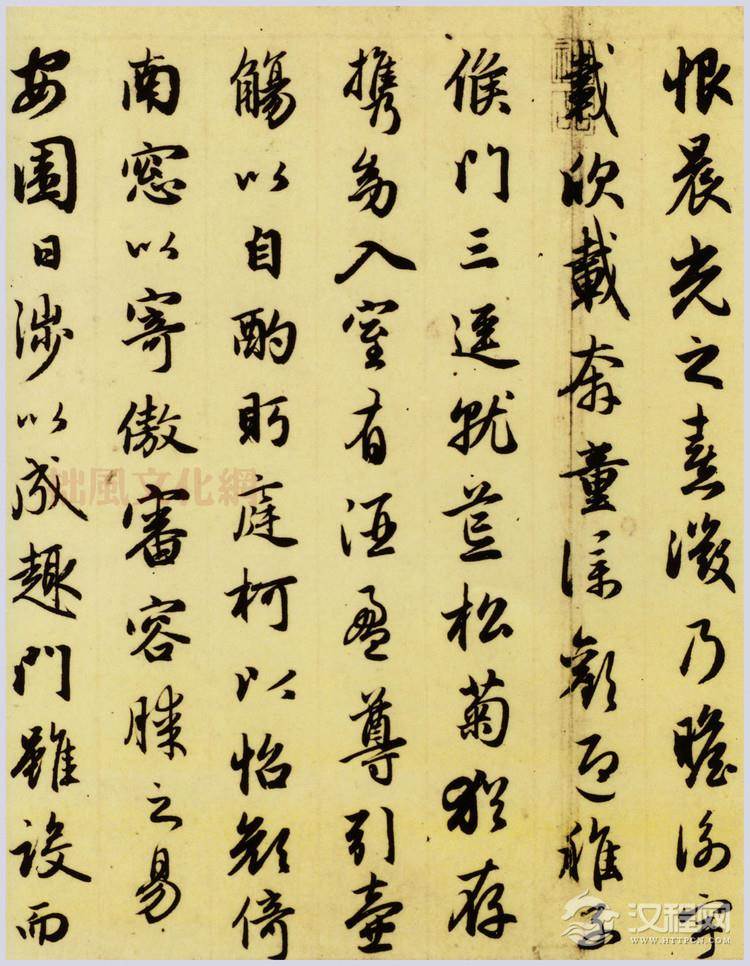 恨晨光之熹微乃瞻衡宇
載欣載奔童僕歡迎稚子
候門三逕就荒松菊猶存
携幼入室有酒盈尊引壺
觴以自酌眄庭柯以怡顔倚
南窓以寄傲審容膝之易
安園日涉以成趣門雖設而
拙風文化網
汉程网
WWW.HTTPCN.COM